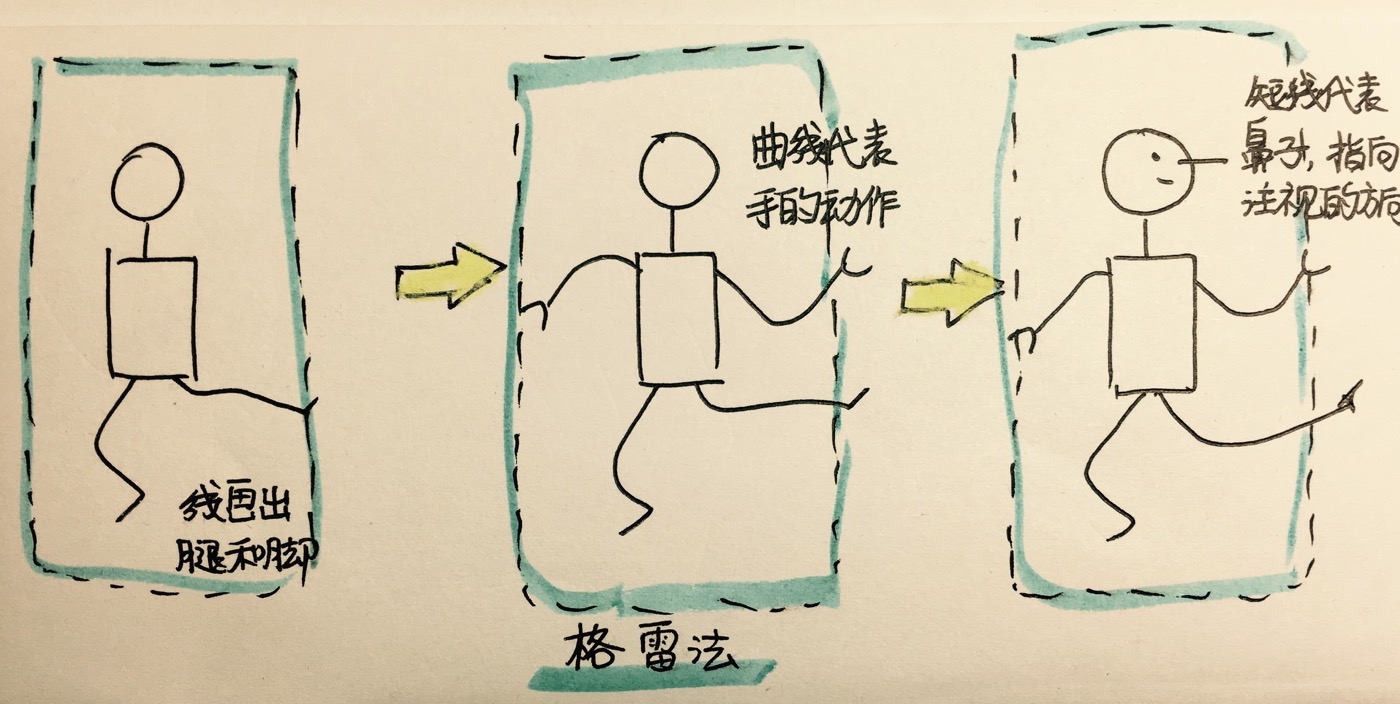 线画出
腿和脚
曲线代表
手的动作
短线代表
鼻子,指向
注视的方向
格雷法